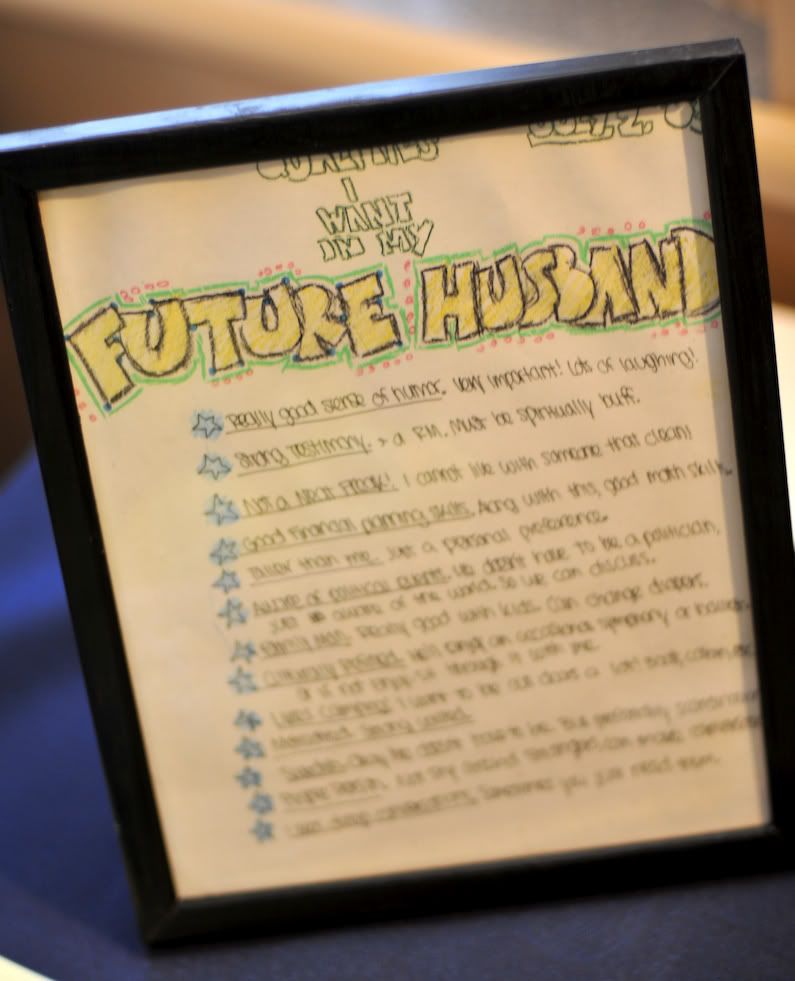 QUALITIES
I
WANT
IN MY
FUTURE HUSBAND
Really good sense of humor. Very important! Lots of laughing!
Strong Testimony. + a RM. Must be spiritually buff.
Not a Neat Freak! I cannot live with someone that clean!
Good financial planning skills. Along with this, good math skills.
Taller than me. Just a personal preference.
Aware of political events. He doesn't have to be a politician,
just aware of the world. So we can discuss.
Family Man. Really good with kids. Can change diapers.
Culturally Refined. He'll enjoy an occasional symphony or
or if not enjoy, sit through it with me.
Likes Camping! I want to be out doors a lot! Boat, cabin, etc.
Motivated. Strong willed.
he doesn't have to be. But preferably
People Person. Not shy around strangers, can make
Likes deep conversations. Sometimes you just need them.